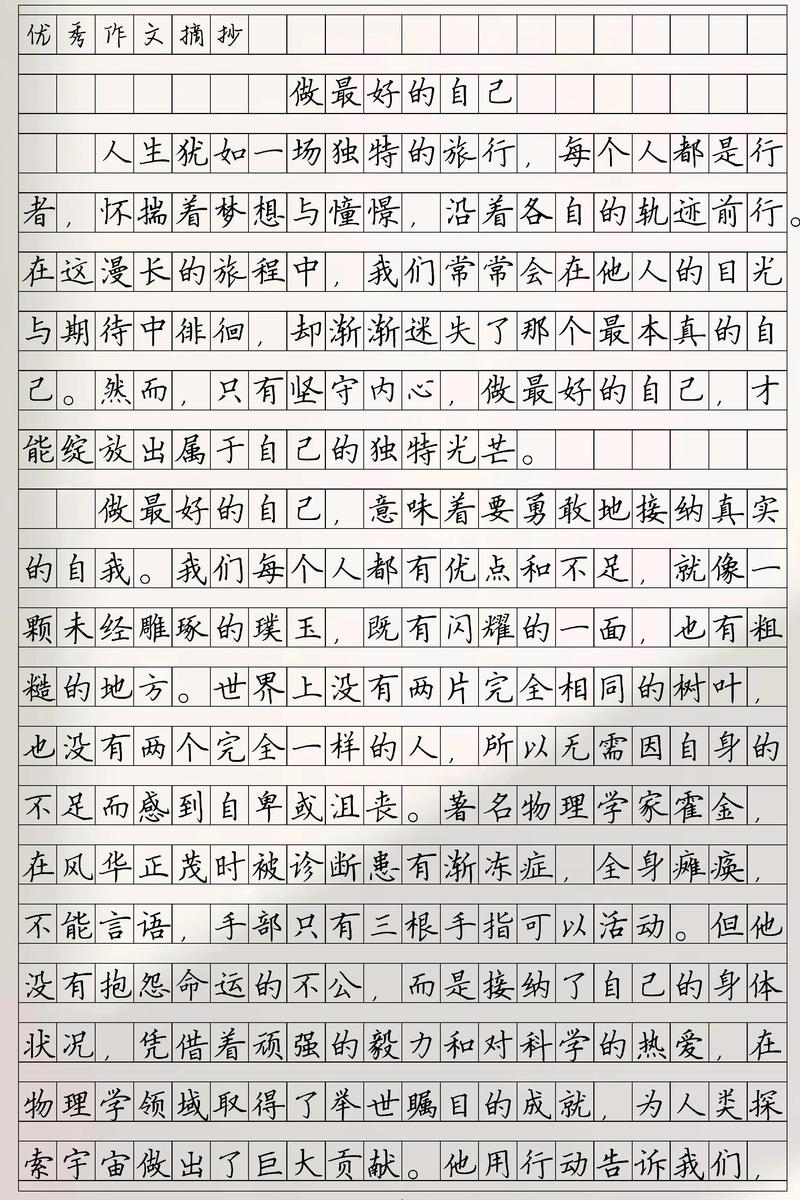 优秀作文摘抄
做最好的自己
人生犹如一场独特的旅行，每个人都是行
者，怀揣着梦想与憧憬，沿着各自的轨迹前行。
在这漫长的旅程中，我们常常会在他人的目光
与期待中徘徊，却渐渐迷失了那个最本真的自
己。然而，只有坚守内心，做最好的自己，才
能绽放出属于自己的独特光芒。
做最好的自己，意味着要勇敢地接纳真实
的自我。我们每个人都有优点和不足，就像一
颗未经雕琢的璞玉，既有闪耀的一面，也有粗
糙的地方。世界上没有两片完全相同的树叶，
也没有两个完全一样的人，所以无需因自身的
不足而感到自卑或沮丧。著名物理学家霍金，
在风华正茂时被诊断患有渐冻症，全身瘫痪，
不能言语，手部只有三根手指可以活动。但他
没有抱怨命运的不公，而是接纳了自己的身体
状况，凭借着顽强的毅力和对科学的热爱，在
物理学领域取得了举世瞩目的成就，为人类探
索宇宙做出了巨大贡献。他用行动告诉我们，